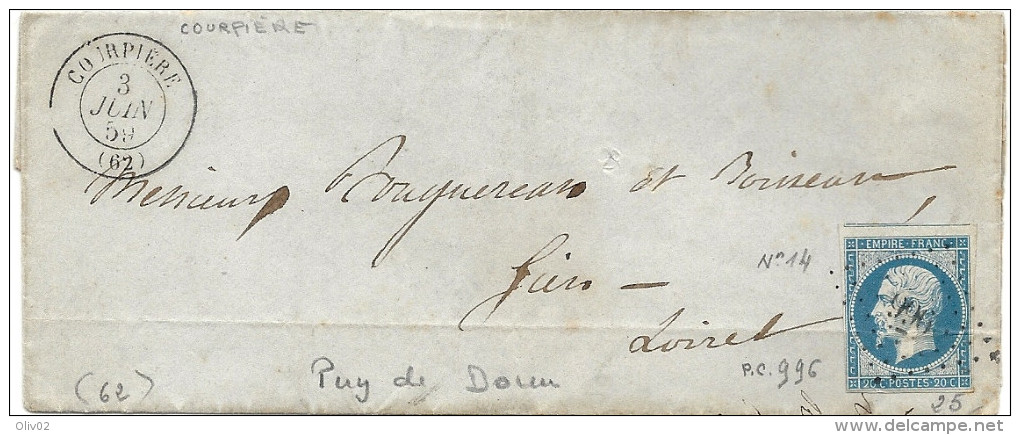 COURPIÈRE
COURPIÈRE
3
JUIN
59
(62)
Messieurs Rouguereau et Boisseau,
Gien —
Loiret
N° 14
EMPIRE FRANC
996
20 C POSTES 20 C
P.C. 996
(62)
Puy de Dome
25
Oliv02
delcampe.net